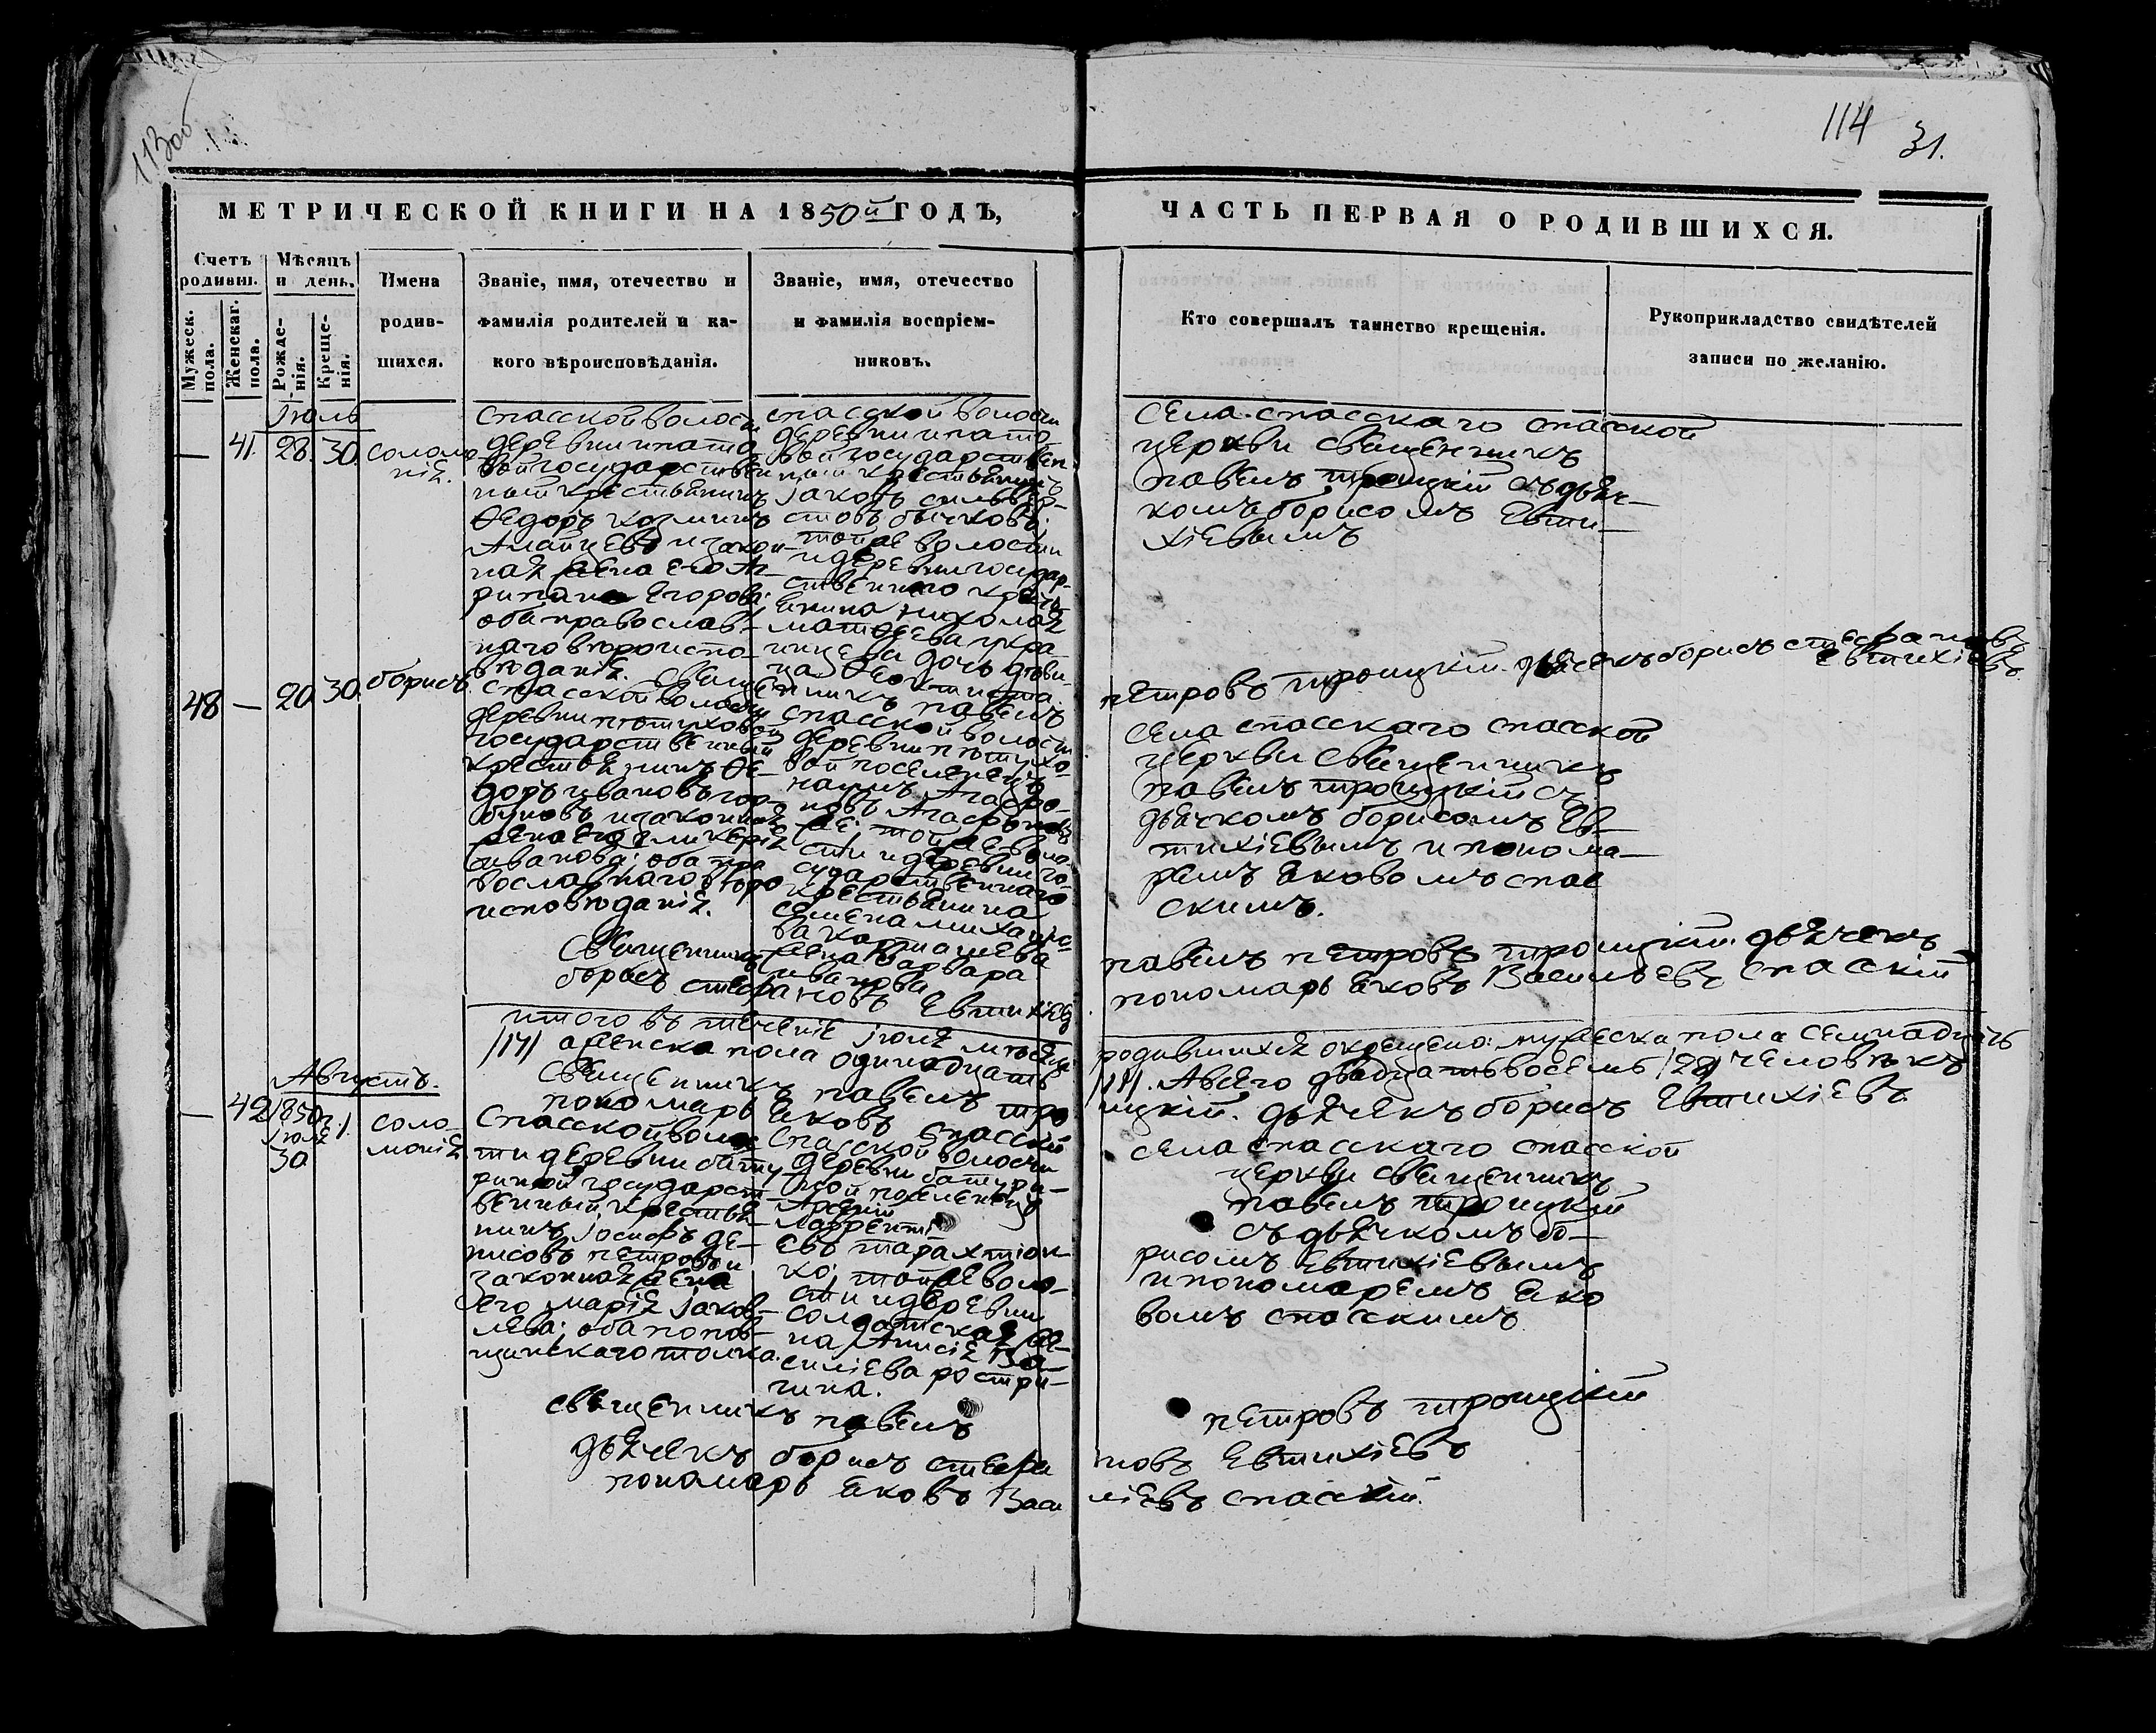 113 об
114
31.
МЕТРИЧЕСКОЙ КНИГИ НА 1850й ГОДЪ,
ЧАСТЬ ПЕРВАЯ О РОДИВШИХСЯ.
Счетъ родивш.
Мужеск. пола.
Женскаг. пола.
Мѣсяцъ и день.
Рожденія.
Крещенія.
Имена
родив-
шихся.
Званіе, имя, отечество и
фамилія родителей и ка-
кого вѣроисповѣданія.
Званіе, имя, отечество
и фамилія воспріем-
никовъ.
Кто совершалъ таинство крещенія.
Рукоприкладство свидѣтелей
записи по желанію.
Іюль
— 41. 28. 30.
Соломо
нія.
Спасской волости
деревни ипато
вой государствен
ный крестьянинъ
Ѳедоръ козминъ
и закон-
ная жена его Аг-
рипана Егорова;
оба православ-
наго вѣроиспо-
вѣданія.
спасской волости
деревни ипато
вой государствен
ный крестьянинъ
Іаковъ сильвер-
стовъ бычковъ;
тойже волости
и деревни государ-
ственнаго кресть
янина николая
матѳеева
дочь дѣви-
ца Ѳеоктиста.
Села спасскаго спасской
церкви священникъ
павелъ троицкій съ дьяч-
комъ борисомъ Евти-
хіевымъ
Священникъ павелъ
петровъ троицкій. дьячекъ борисъ стефановъ
Евтихіевъ
48 — 20 30
борисъ
спасской волости
деревни
государственный
крестьянинъ Ѳе-
доръ ивановъ гор-
буновъ и законная
жена его гликерія
иванова; оба пра
вославнаго вѣро
исповѣданія.
спасской волости
деревни
вой поселенецъ
тойже воло
сти и деревни го-
сударственнаго
крестьянина
семена михайло-
ва карташева
жена варвара
иванова
Села спасскаго спасской
церкви священникъ
павелъ троицкій съ
дьячкомъ борисомъ Ев-
тихіевымъ и понома-
ремъ яковомъ спас
скимъ.
Священникъ
павелъ петровъ троицкій. дьячекъ
борисъ стефановъ Евтихіевъ
пономарь яковъ Васильевъ спасскій
итого въ теченіе іюля мѣсяца
родившихся окрещено: мужеска пола семнадцать
/17/ аженска пола одинадцать
/11/. Авсего двадцать восемь /28/ человѣкъ
Священникъ павелъ тро
ицкій. дьячекъ борисъ Евтихіевъ
пономарь яковъ спасскій
Августъ.
— 42 1850г. 1.
Іюля
30
соло
монія
Спасской воло
сти деревни бату
риной государст-
венный крестья-
нинъ Іосифъ де-
нисовъ петровъ и
законная жена
его марія Іаков-
лева; оба попов-
щинскаго толка.
спасской волости
деревни батури-
ной поселенецъ
лаврентi
евъ тарахтіон-
ко; тойже воло-
сти и деревни
солдатская же-
на Анисія Ва-
силіева ростри-
гина.
Села спасскаго спасской
церкви священникъ
павелъ троицкій
съ дьячкомъ бо-
рисомъ Евтихіевымъ
и пономаремъ яко
вомъ спасскимъ
священникъ павелъ
петровъ троицкій
дьячекъ борисъ стефа
новъ Евтихіевъ
пономарь яковъ Васи
ліевъ спасскій.